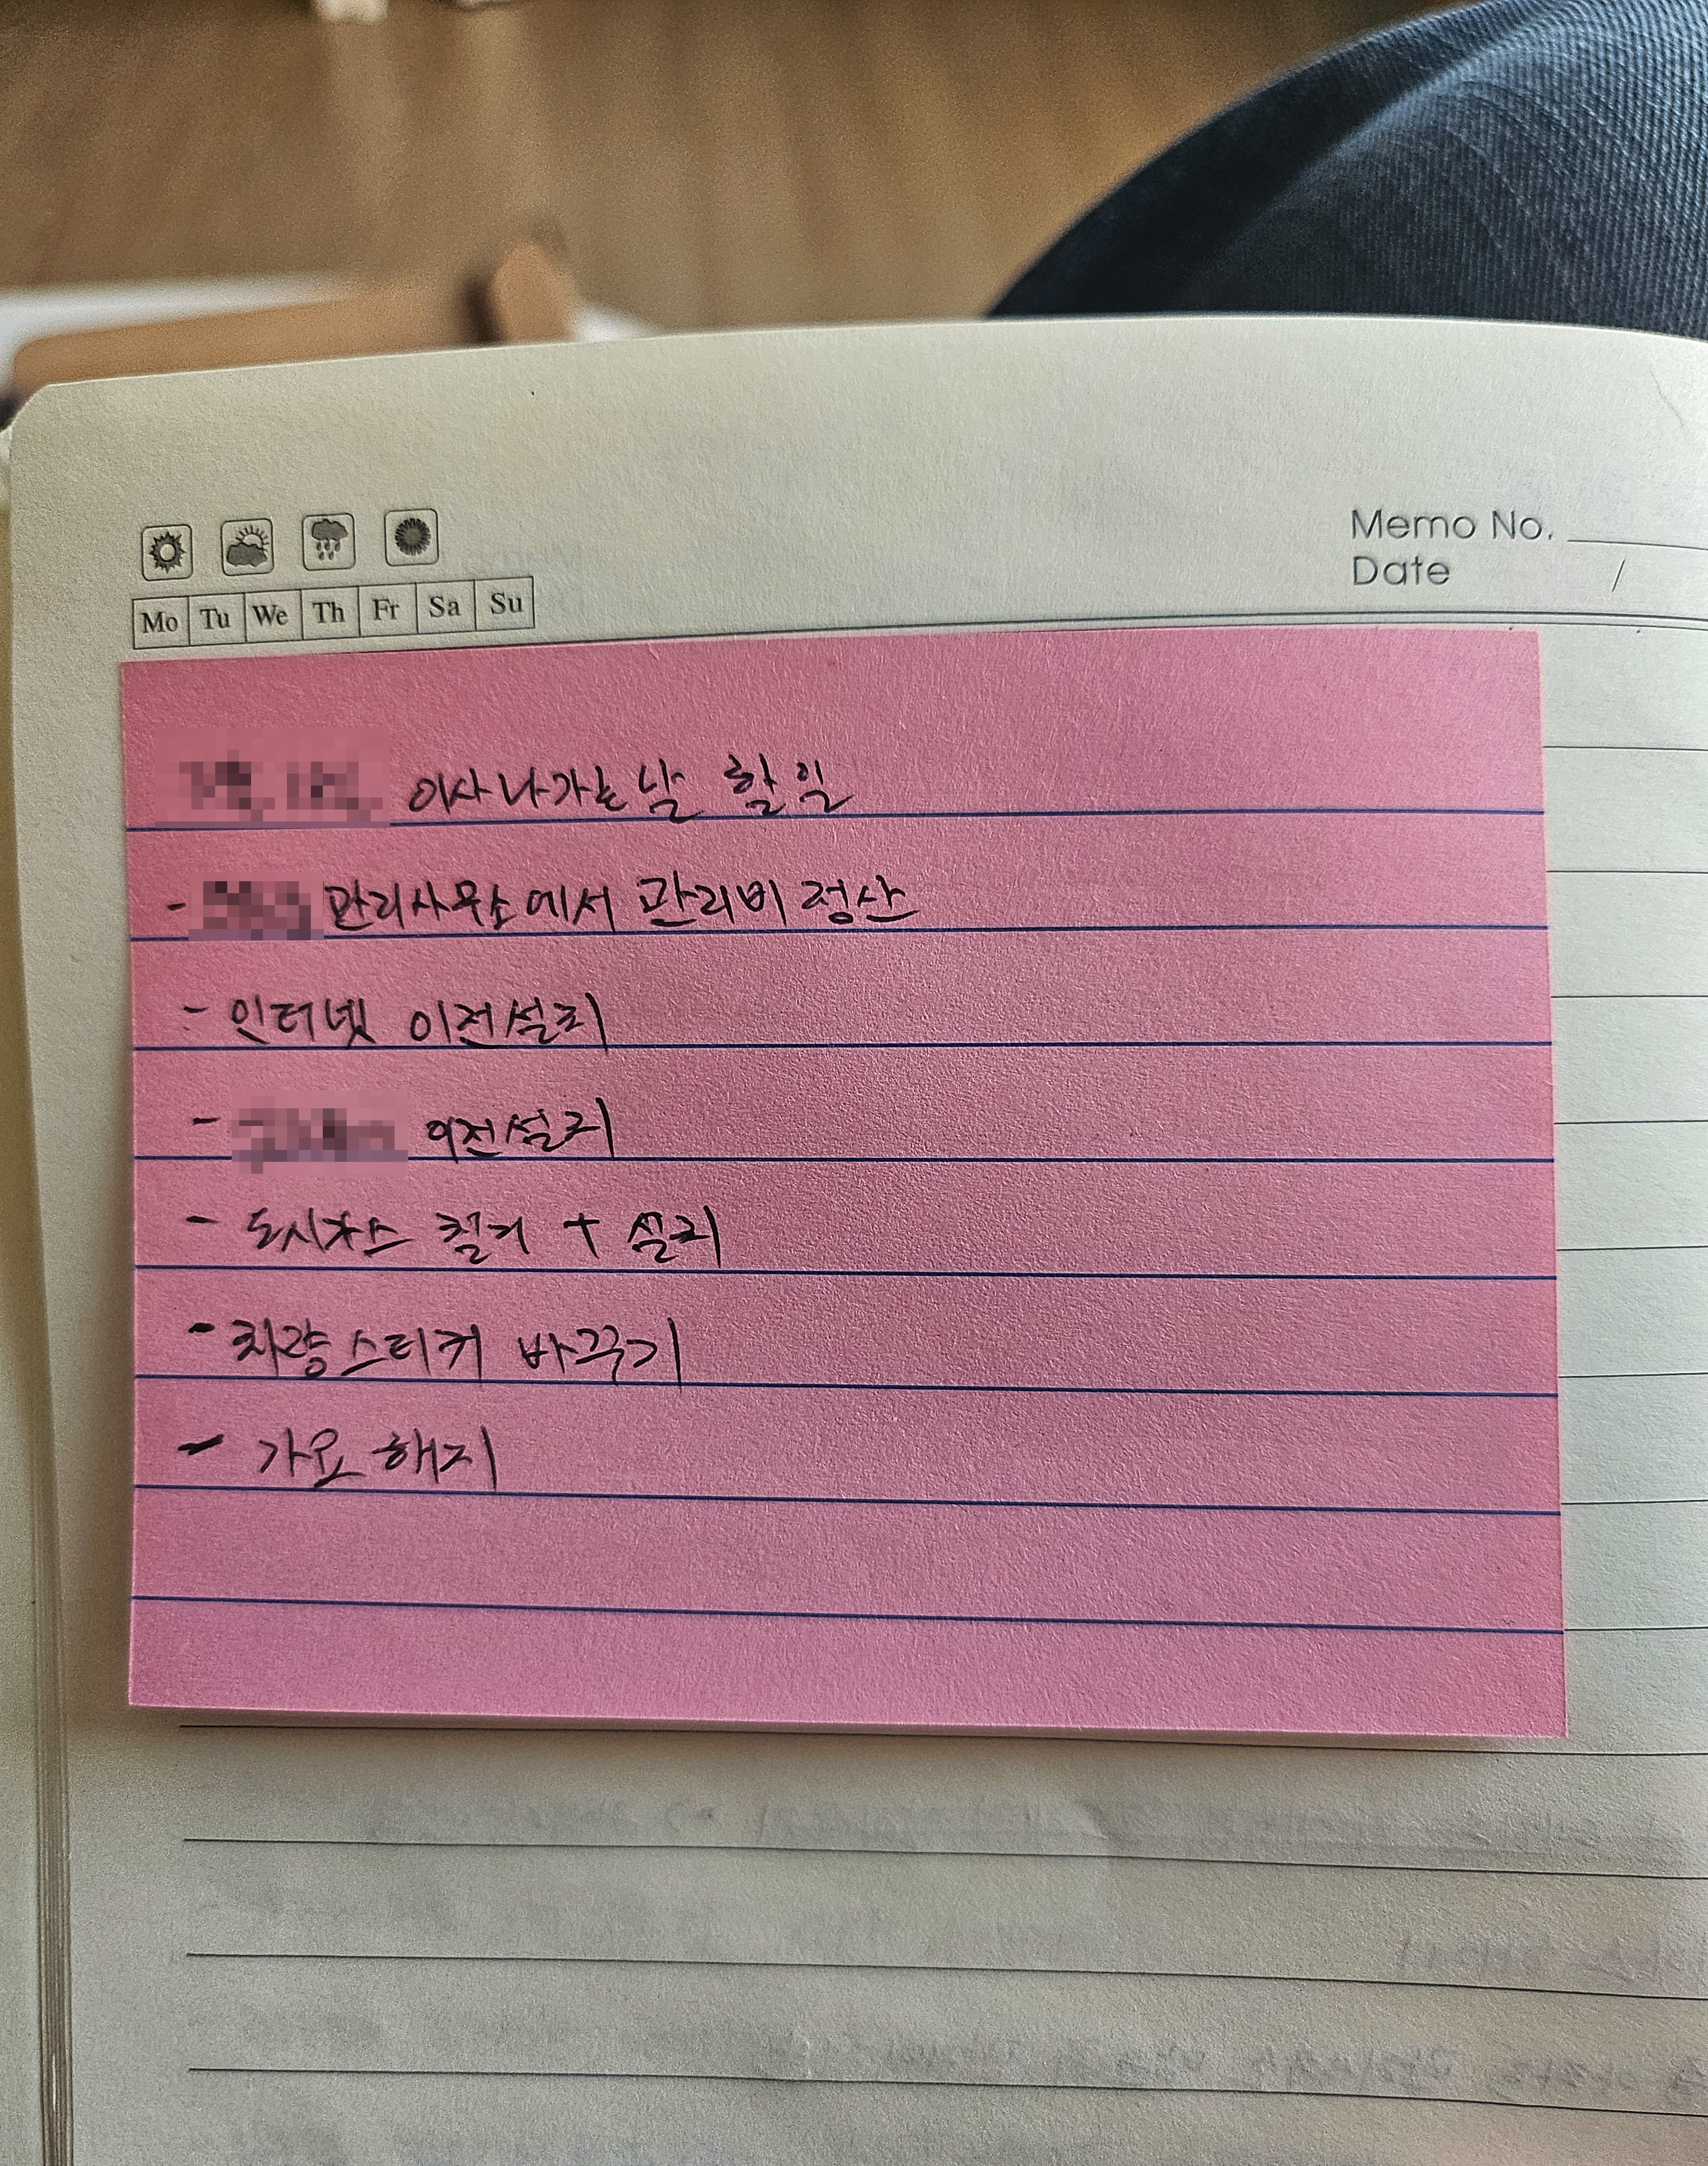 Memo No.
Date /
Mo Tu We Th Fr Sa Su
이사 나가는 날 할 일
- 관리사무소에서 관리비 정산
- 인터넷 이전설치
- 이전설치
- 도시가스 철거 + 설치
- 차량스티커 바꾸기
- 가요 해지